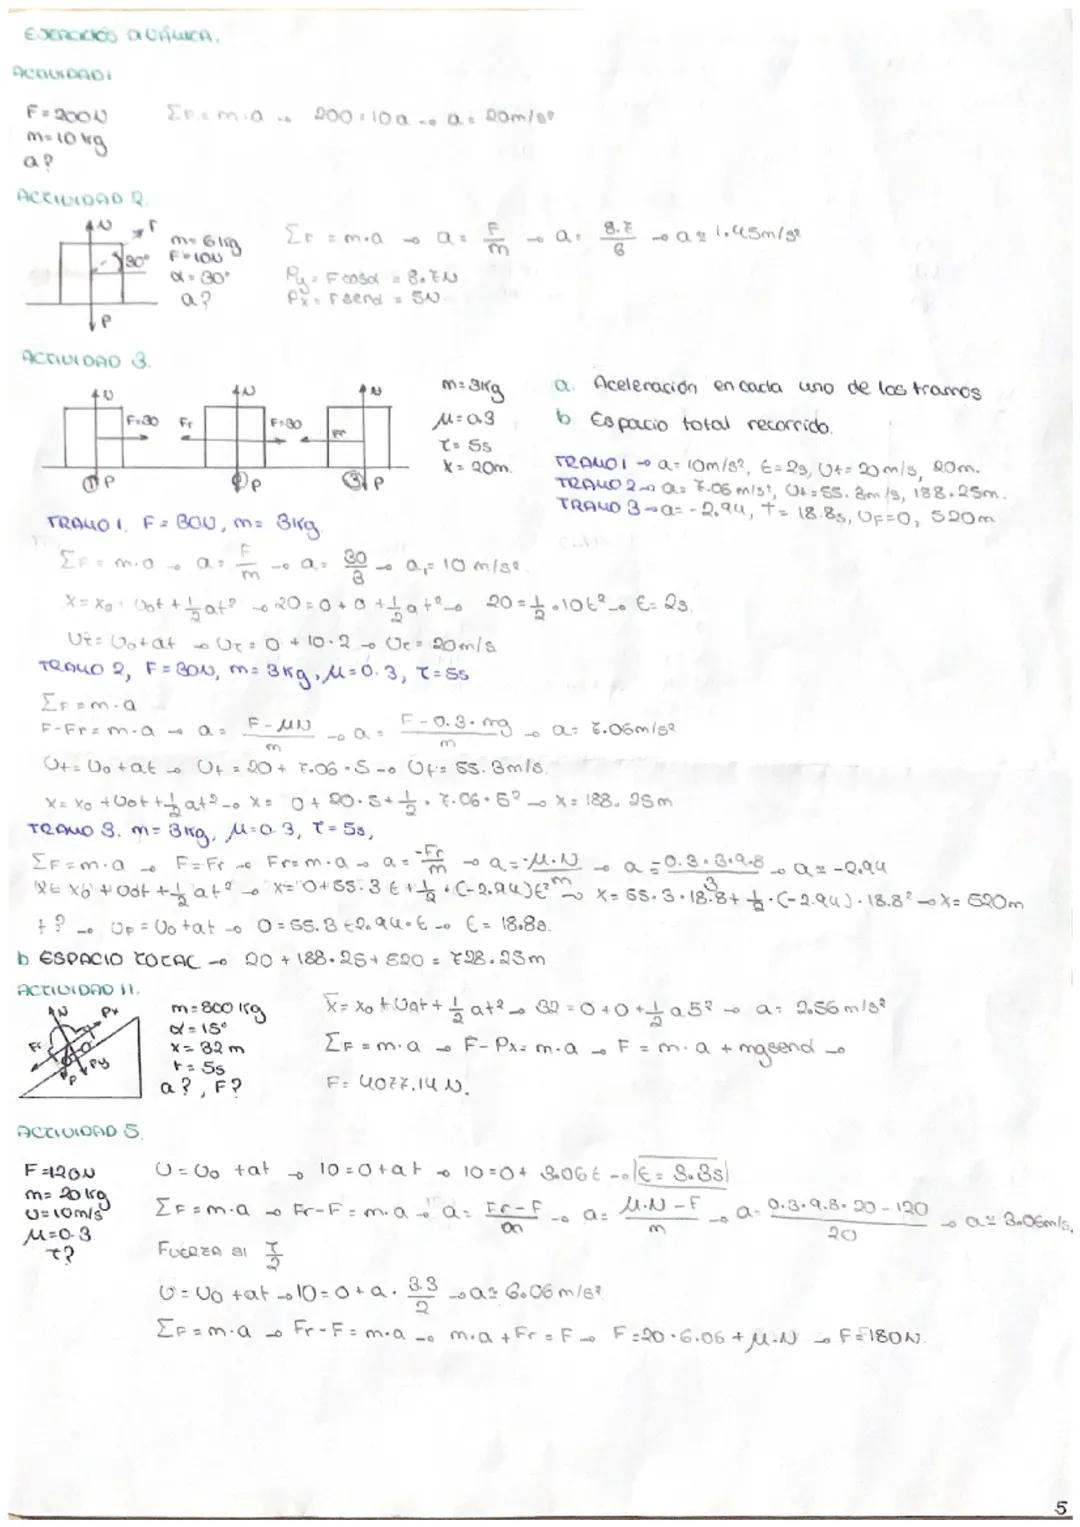 EJERCICIOS DINÁMICA.
ACTIVIDAD 1
F=200N
m=10 kg
a?
ΣF=m·a → 200=10a → a=20m/s²
ACTIVIDAD 2.
N
F
30°
P
m=6kg
F=10N
α=30°
a?
ΣF=m·a → a=F/m → a=8.7/6 → a≅1.45m/s²
Py=Fcosα=8.7N
Px=Fsenα=5N
ACTIVIDAD 3.
N F=30 P ①
N Fr F=30 P ②
N Fr P ③
m=3kg
μ=0.3
t=5s
x=20m.
a. Aceleración en cada uno de los tramos
b Espacio total recorrido.
TRAMO 1 → a=10m/s², t=2s, Vt=20m/s, 20m.
TRAMO 2 → a=7.06m/s², Vt=55.3m/s, 188.25m.
TRAMO 3 → a=-2,94, t=18.8s, VF=0, 520m
TRAMO 1. F=30N, m=3kg
ΣF=m·a → a=F/m → a=30/3 → a₁=10 m/s².
x=x₀+V₀t+½at² → 20=0+0+½at² → 20=½·10t² → t=2s.
Vt=V₀+at → Vt=0+10·2 → Vt=20m/s
TRAMO 2, F=30N, m=3kg, μ=0.3, t=5s
ΣF=m·a
F-Fr=m·a → a=F-μN/m → a=F-0.3·mg/m → a=7.06m/s²
Vt=V₀+at → Vt=20+7.06·5 → Vt=55.3m/s.
x=x₀+V₀t+½at² → x=0+20·5+½·7.06·5² → x=188.25m
TRAMO 3. m=3kg, μ=0.3, t=5s,
ΣF=m·a → F=Fr → Fr=m·a → a=-Fr/m → a=-μ·N/m → a=-0.3·3·9.8/3 → a≅-2.94
x=x₀+V₀t+½at² → x=0+55.3t+½·(-2.94)t² → x=55.3·18.8+½·(-2.94)·18.8² → x=520m
t? → VF=V₀+at → 0=55.3-2.94·t → t=18.8s.
b ESPACIO TOTAL → 20+188.25+520=728.25m
ACTIVIDAD 11.
N Px Fr Py P
m=800 kg
α=15°
x=32m
t=5s
a?, F?
x=x₀+V₀t+½at² → 32=0+0+½a5² → a=2.56m/s²
ΣF=m·a → F-Px=m·a → F=m·a+mgsenα →
F=4077.14N.
ACTIVIDAD 5.
F=120N
m=20kg
V=10m/s
μ=0.3
t?
V=V₀+at → 10=0+at → 10=0+3.06t → t=3.3s
ΣF=m·a → Fr-F=m·a → a=Fr-F/m → a=μ·N-F/m → a=0.3·9.8·20-120/20 → a≅3.06m/s.
FUERZA SI t/2
V=V₀+at → 10=0+a·3.3/2 → a≅6.06m/s²
ΣF=m·a → Fr-F=m·a → m·a+Fr=F → F=20·6.06+μ·N → F=180N.
5